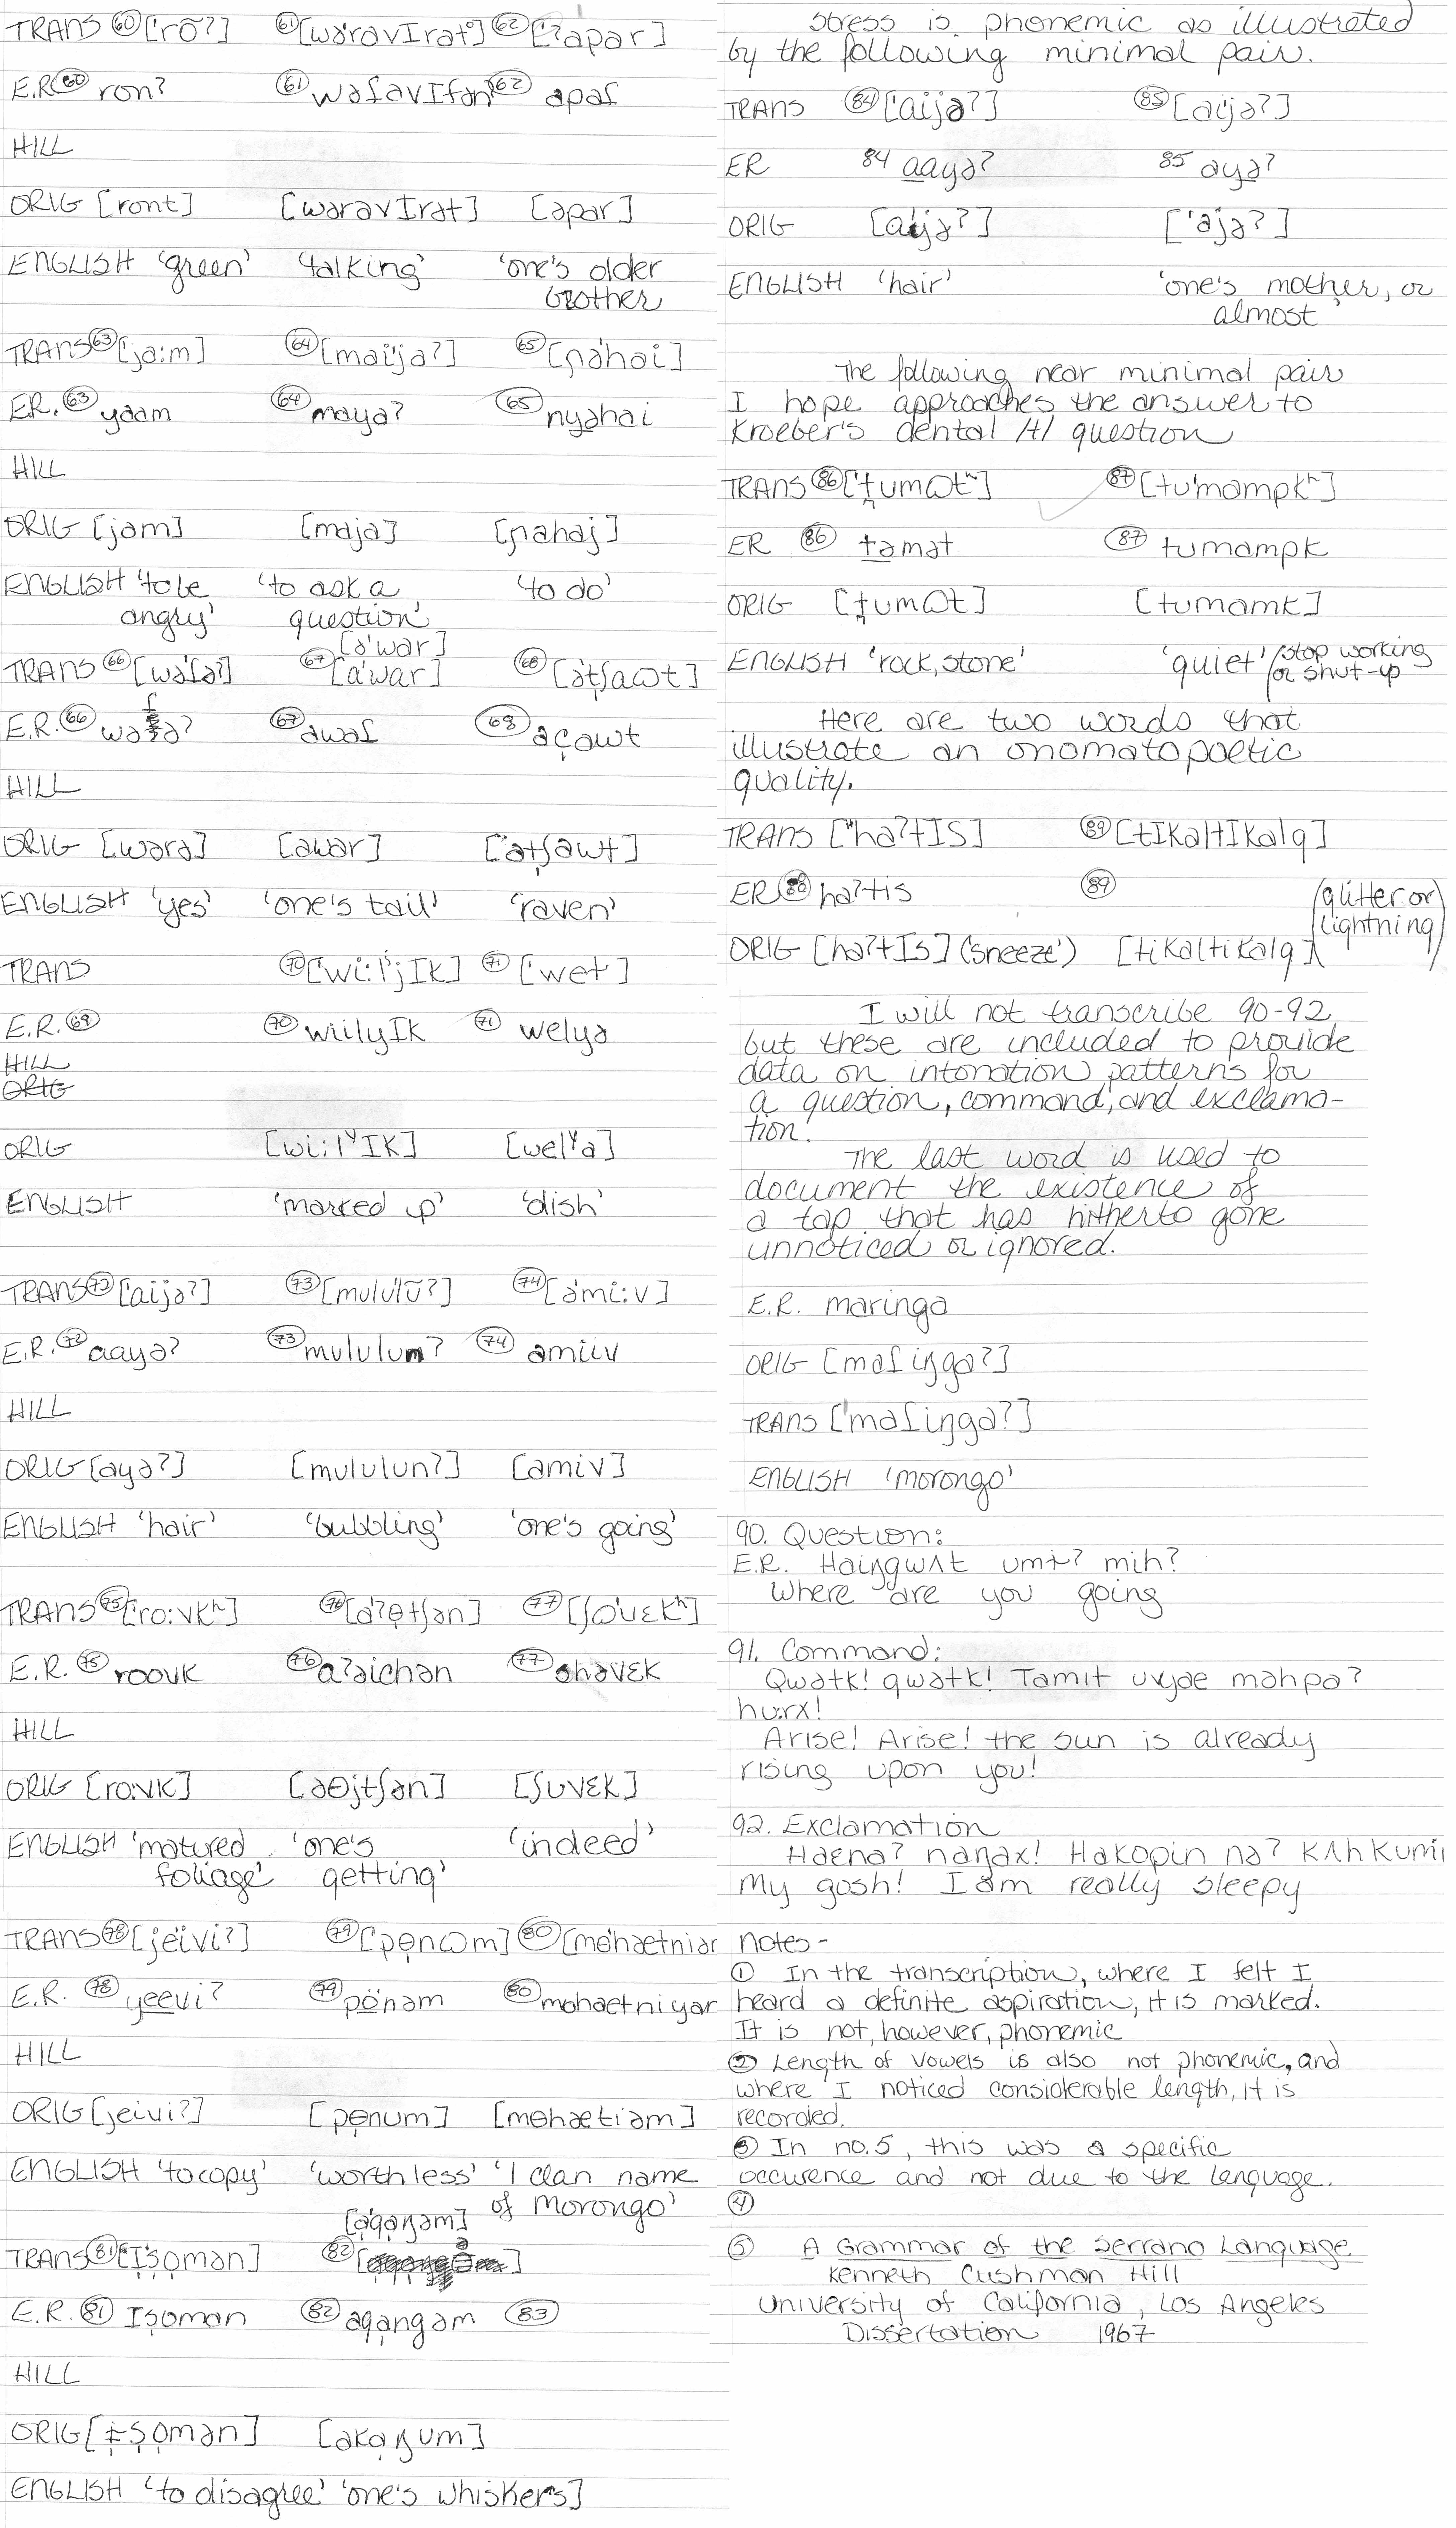 TRANS ⑥⓪ ['rõʔ] ⑥① [wə'rəvIrət] ⑥② ['ʔəpər]
E.R. ⑥⓪ ronʔ ⑥① wəɾəvIfən ⑥② əpəɾ
HILL
ORIG [ront] [wərəvIrət] [əpər]
ENGLISH 'green' 'talking' 'one's older
brother
TRANS ⑥③ ['ja:m] ⑥④ [mai'jaʔ] ⑥⑤ [ɲə'hai]
E.R. ⑥③ yaam ⑥④ mayəʔ ⑥⑤ nyəhai
HILL
ORIG [jam] [maja] [ɲəhaj]
ENGLISH 'to be 'to ask a 'to do'
angry' question'
[ə'war]
TRANS ⑥⑥ [wə'ɾəʔ] ⑥⑦ [ə'war] ⑥⑧ [ə'tʃawt]
E.R. ⑥⑥ wəɾəʔ ⑥⑦ əwaɾ ⑥⑧ əçawt
HILL
ORIG [wərə] [əwar] ['ətʃəwt]
ENGLISH 'yes' 'one's tail' 'raven'
TRANS ⑦⓪ ['wi:lʲjIk] ⑦① ['wet]
E.R. ⑥⑨ ⑦⓪ wiilyIk ⑦① welyə
HILL
ORIG
ORIG [wi:lʸIK] [welʸa]
ENGLISH 'marked up' 'dish'
TRANS ⑦② ['aijəʔ] ⑦③ [mulu'lũʔ] ⑦④ [ə'mi:v]
E.R. ⑦② aayəʔ ⑦③ mululumʔ ⑦④ əmiiv
HILL
ORIG [ayəʔ] [mululunʔ] [əmiv]
ENGLISH 'hair' 'bubbling' 'one's going'
TRANS ⑦⑤ ['ro:vkʰ] ⑦⑥ [ə'ʔɵtʃən] ⑦⑦ [ʃɷ'vɛkʰ]
E.R. ⑦⑤ roovk ⑦⑥ aʔəichən ⑦⑦ shəvɛk
HILL
ORIG [ro:vk] [əɵjtʃən] [ʃuvɛk]
ENGLISH 'matured 'one's 'indeed'
foliage' getting'
TRANS ⑦⑧ [jei'viʔ] ⑦⑨ ['pɵnɷm] ⑧⓪ [mɵhætniər
E.R. ⑦⑧ yeeviʔ ⑦⑨ pönəm ⑧⓪ mohaetniyar
HILL
ORIG [jeiviʔ] [pɵnum] [mɵhætiəm]
ENGLISH 'to copy' 'worthless' '1 clan name
of Morongo'
[ə'qaŋəm]
TRANS ⑧① [I'ṣọmən] ⑧② [ ]
E.R. ⑧① Iṣomən ⑧② əqangəm ⑧③
HILL
ORIG [ɨṣọmən] [əkaŋum]
ENGLISH 'to disagree' 'one's whiskers]
Stress is phonemic as illustrated
by the following minimal pair.
TRANS ⑧④ ['aijəʔ] ⑧⑤ [ai'jəʔ]
ER 84 aayəʔ 85 ayəʔ
ORIG [a'ijəʔ] ['əjəʔ]
ENGLISH 'hair' 'one's mother, or
almost'
The following near minimal pair
I hope approaches the answer to
Kroeber's dental /t/ question
TRANS ⑧⑥ ['t̪umɷtʰ] ⑧⑦ [tu'məmpkʰ]
ER ⑧⑥ təmət ⑧⑦ tuməmpk
ORIG [t̪umɷt] [tumamk]
ENGLISH 'rock, stone' 'quiet' (stop working
or shut-up
Here are two words that
illustrate an onomatopoetic
quality.
TRANS ['haʔtIS] ⑧⑨ [tIkəltIkəlq]
ER ⑧⑧ haʔtis ⑧⑨ (glitter or
lightning)
ORIG [haʔtIs] ('sneeze') [tikəltikalq]
I will not transcribe 90-92
but these are included to provide
data on intonation patterns for
a question, command, and exclama-
tion.
The last word is used to
document the existence of
a tap that has hitherto gone
unnoticed or ignored.
E.R. maringa
ORIG [maɾiŋgaʔ]
TRANS ['maɾiŋgaʔ]
ENGLISH 'morongo'
90. Question:
E.R. Haiŋgwʌt umɨʔ mih?
Where are you going
91. Command:
Qwətk! qwətk! Tamit uvyae məhpaʔ
hu:rx!
Arise! Arise! the sun is already
rising upon you!
92. Exclamation
Haenaʔ naŋax! Hakopin nəʔ Kʌh Kumi
My gosh! I am really sleepy
Notes-
① In the transcription, where I felt I
heard a definite aspiration, it is marked.
It is not, however, phonemic
② Length of vowels is also not phonemic, and
where I noticed considerable length, it is
recorded.
③ In no. 5, this was a specific
occurence and not due to the language.
④
⑤ A Grammar of the Serrano Language
Kenneth Cushman Hill
University of California, Los Angeles
Dissertation 1967